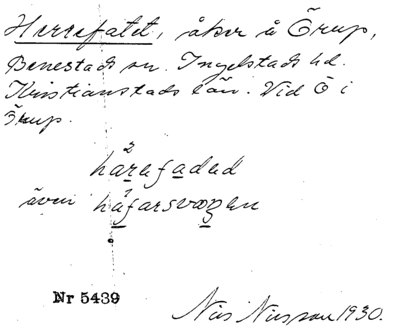 Herrefatet, åker å Örup,
Benestads sn. Ingelstads hd.
Kristianstads län. Vid Ö i
Örup.
hárafadad
även håfarsvagen
Nr 5439
Nils Nilsson 1930.